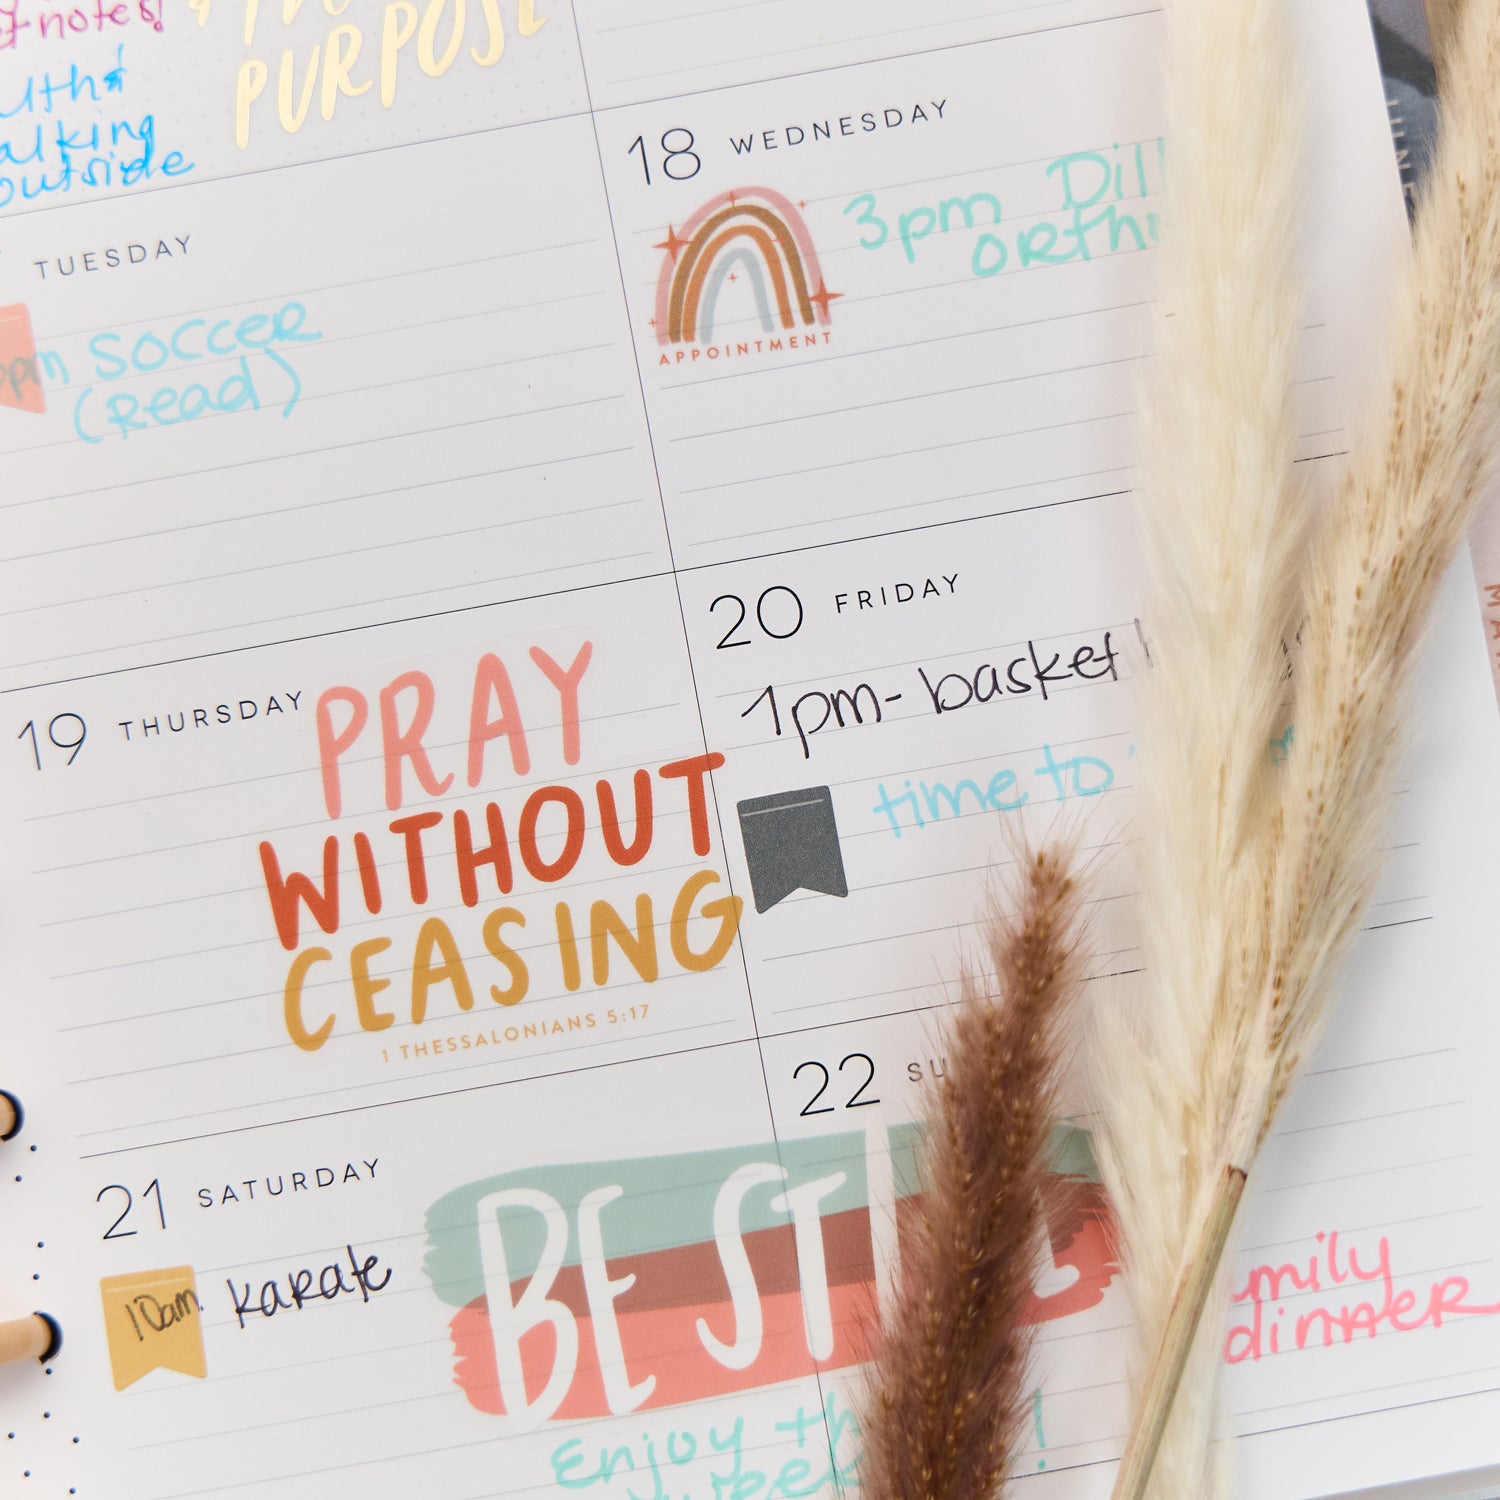 notes!
PURPOSE
alking
outside
TUESDAY
pm soccer
(Read)
18 WEDNESDAY
3pm Dill
APPOINTMENT
19 THURSDAY
PRAY
WITHOUT
CEASING
1 THESSALONIANS 5:17
20 FRIDAY
1pm- basket
time to
21 SATURDAY
10am karate
22 SU
BE STILL
Enjoy th
!
mily
dinner